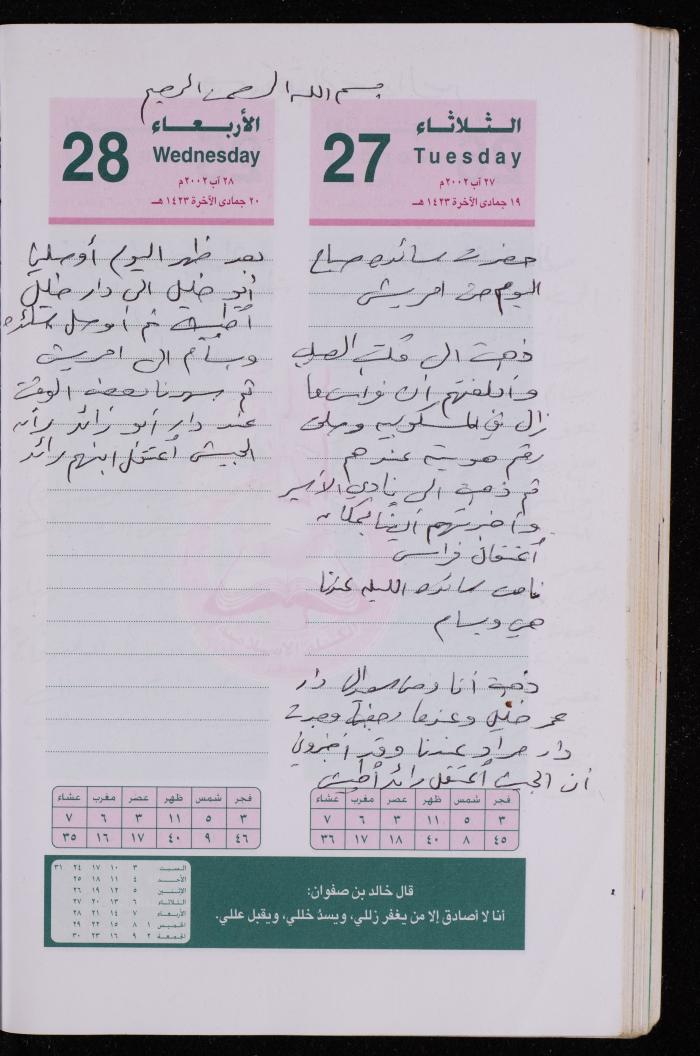 بسم الله الرحمن الرحيم
الثلاثاء
27
Tuesday
٢٧ آب ٢٠٠٢م
١٩ جمادى الآخرة ١٤٢٣ هـ
حضرت سائده صباح
اليوم من امريش
ذهبت الى
وأبلغتهم أن فراس ما
زال في المسكوبيه وعلى
رقم هويته عندهم
ثم ذهبت الى نادي الأسير
وأخبرتهم أيضا بمكان
أعتقال فراس
نامت سائده الليله عندنا
هي وبسام
ذهبت أنا الى دار
عمر خليل وعندما رجعنا وجدت
دار مراد عندنا وقد أخبروني
أن الجيش أعتقل رائد
فجر شمس ظهر عصر مغرب عشاء
٣ ٥ ١١ ٣ ٦ ٧
٤٥ ٨ ٤٠ ١٨ ١٧ ٣٦
الأربعاء
28
Wednesday
٢٨ آب ٢٠٠٢م
٢٠ جمادى الآخرة ١٤٢٣ هـ
بعد ظهر اليوم أوصلني
أبو خليل الى دار خليل
ثم أوصل سائده
وبسام الى امريش
ثم سهرنا بعض الوقت
عند دار أبو رائد لأن
الجيش أعتقل ابنهم رائد
فجر شمس ظهر عصر مغرب عشاء
٣ ٥ ١١ ٣ ٦ ٧
٤٦ ٩ ٤٠ ١٧ ١٦ ٣٥
قال خالد بن صفوان:
أنا لا أصادق إلا من يغفر زللي، ويسدُ خللي، ويقبل عللي.
السبت ٣ ١٠ ١٧ ٢٤ ٣١
الأحد ٤ ١١ ١٨ ٢٥
الاثنين ٥ ١٢ ١٩ ٢٦
الثلاثاء ٦ ١٣ ٢٠ ٢٧
الأربعاء ٧ ١٤ ٢١ ٢٨
الخميس ١ ٨ ١٥ ٢٢ ٢٩
الجمعة ٢ ٩ ١٦ ٢٣ ٣٠